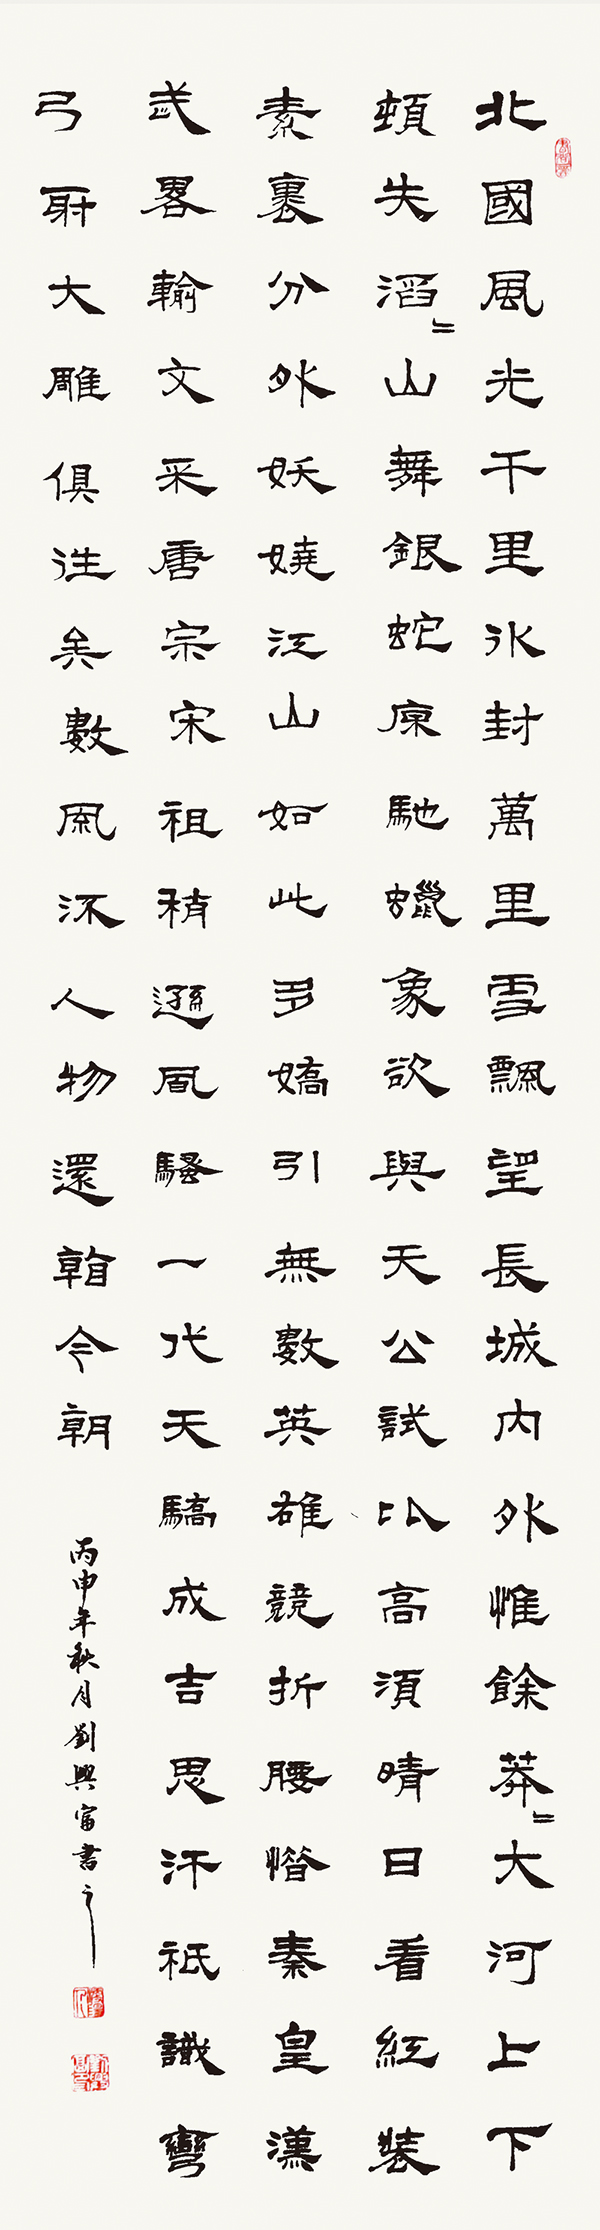 北國風光千里冰封萬里雪飄望長城内外惟餘莽〻大河上下
頓失滔〻山舞銀蛇原馳蠟象欲與天公試比高須晴日看紅裝
素裹分外妖嬈江山如此多嬌引無數英雄競折腰惜秦皇漢
武畧輸文采唐宗宋祖稍遜風騷一代天驕成吉思汗祇識彎
弓射大雕俱往矣數風流人物還看今朝
丙申年秋月劉興富書之